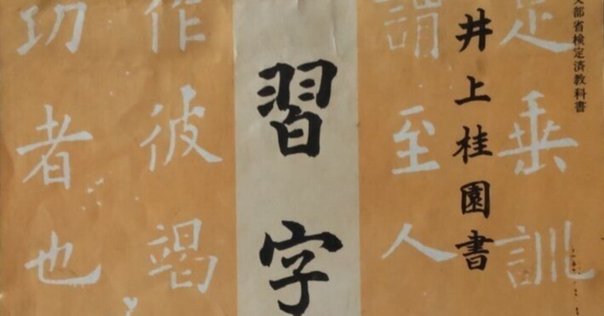 文部省検定済教科書
井上桂園書
足垂訓
謂至人
習字
作彼竭
功者也